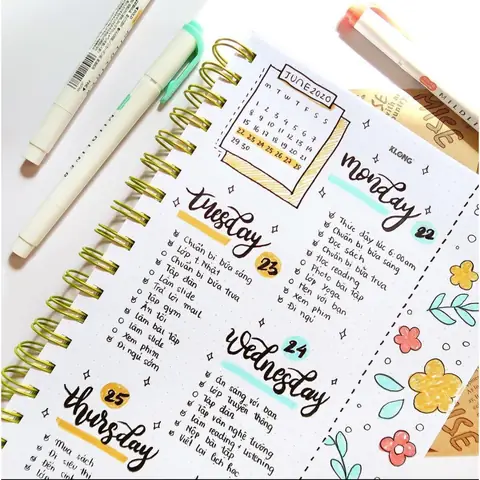 JUNE 2020
M T W T F S S
1 2 3 4 5 6 7
8
15 16 17 18 19 20 21
22 23 24 25 26 27 28
29 30
KLONG
monday
22
Thức dậy lúc 6:00am
Chuẩn bị bữa sáng
Đọc sách
Chuẩn bị bữa trưa
Học reading
Photo bài tập
Lớp yoga
Hẹn với bạn
Xem phim
Đi ngủ
tuesday
23
Chuẩn bị bữa sáng
Lớp T. Nhật
Chuẩn bị bữa trưa
Tập đàn
Làm slide
Trả lời mail
Tập gym
Ăn tối
Làm bài tập
Làm slide
Xem phim
Đi ngủ sớm
wednesday
24
Ăn sáng với bạn
Lớp truyền thông
Tập đàn
Tập văn nghệ trường
Làm reading, listening
Nộp bài tập
Viết lại lịch học
thursday
25
Mua sách
Đi siêu thị
Đến sinh
Lớp
MILDLINER